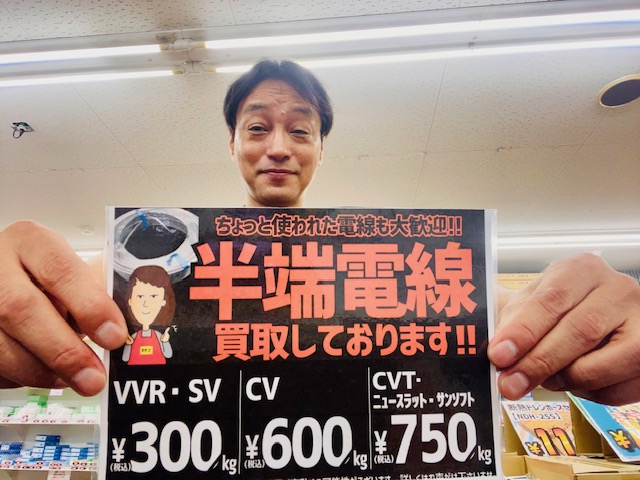 ちょっと使われた電線も大歓迎!!
半端電線
買取しております!!
VVR・SV
¥300/kg
(税込)
CV
¥600/kg
(税込)
CVT・
ニュースラット・サンソフト
¥750/kg
(税込)
断熱ドレンホースセ
[NDH-25S]
¥11